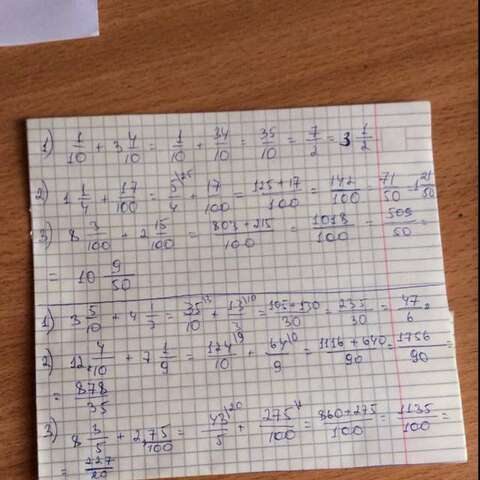 1) 1/10 + 3 4/10 = 1/10 + 34/10 = 35/10 = 7/2 = 3 1/2
2) 1 1/4 + 17/100 = 5\25/4 + 17/100 = 125+17/100 = 142/100 = 71/50 = 1 21/50
3) 8 3/100 + 2 15/100 = 803+215/100 = 1018/100 = 509/50 =
= 10 9/50
1) 3 5/10 + 4 1/3 = 35\3/10 + 13\10/3 = 105+130/30 = 235/30 = 47/6 =
2) 12 4/10 + 7 1/9 = 124\9/10 + 64\10/9 = 1116+640/90 = 1756/90 =
= 878/35
3) 8 3/5 + 2 75/100 = 43\20/5 + 275\1/100 = 860+275/100 = 1135/100 =
= 227/20